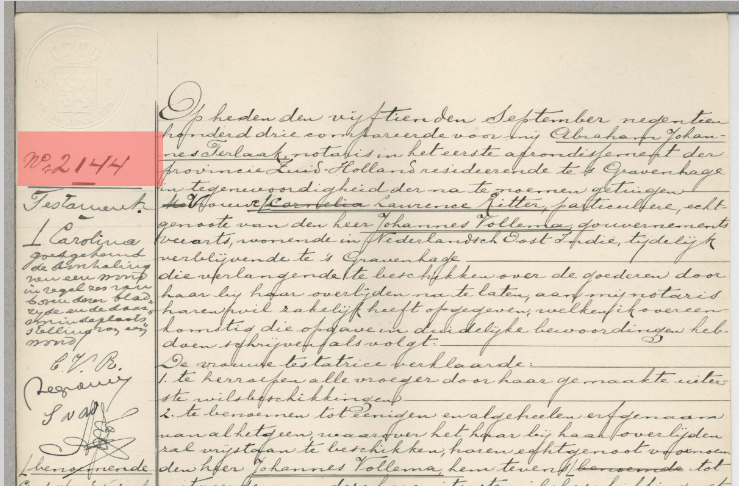 Op heden den vijftienden September negentien
honderd drie compareerde voor mij Abraham Johan-
nes Terlaak, notaris in het eerste arrondissement der
provincie Zuid-Holland resideerende te 's Gravenhage
in tegenwoordigheid der na te noemen getuigen
Vrouwe Cornelia Laurence Ritter, particuliere, echt-
genoote van den heer Johannes Vollema, gouvernements
veearts, wonende in Nederlandsch Oost-Indië, tijdelijk
verblijvende te 's Gravenhage
die verlangende te beschikken over de goederen door
haar bij haar overlijden na te laten, aan mij notaris
haren wil zakelijk heeft opgegeven, welken ik overeen-
komstig die opgave in duidelijke bewoordingen heb
doen schrijven als volgt:
De vrouwe testatrice verklaarde:
1. te herroepen alle vroeger door haar gemaakte uiter-
ste wilsbeschikkingen
2. te benoemen tot eenigen en algeheelen erfgenaam
van al hetgeen, waarover het haar bij haar overlijden
zal vrijstaan te beschikken, haren echtgenoot voornoem
den heer Johannes Vollema, hem tevens benoemde tot
No. 2144
Testament.
Carolina
goedgekeurd
de doorhaling
van een woord
in regel zes van
boven dezer blad-
zijde en de daar-
voor in de plaats
stelling van een
woord
C.V.R.
S v d W
benoemende